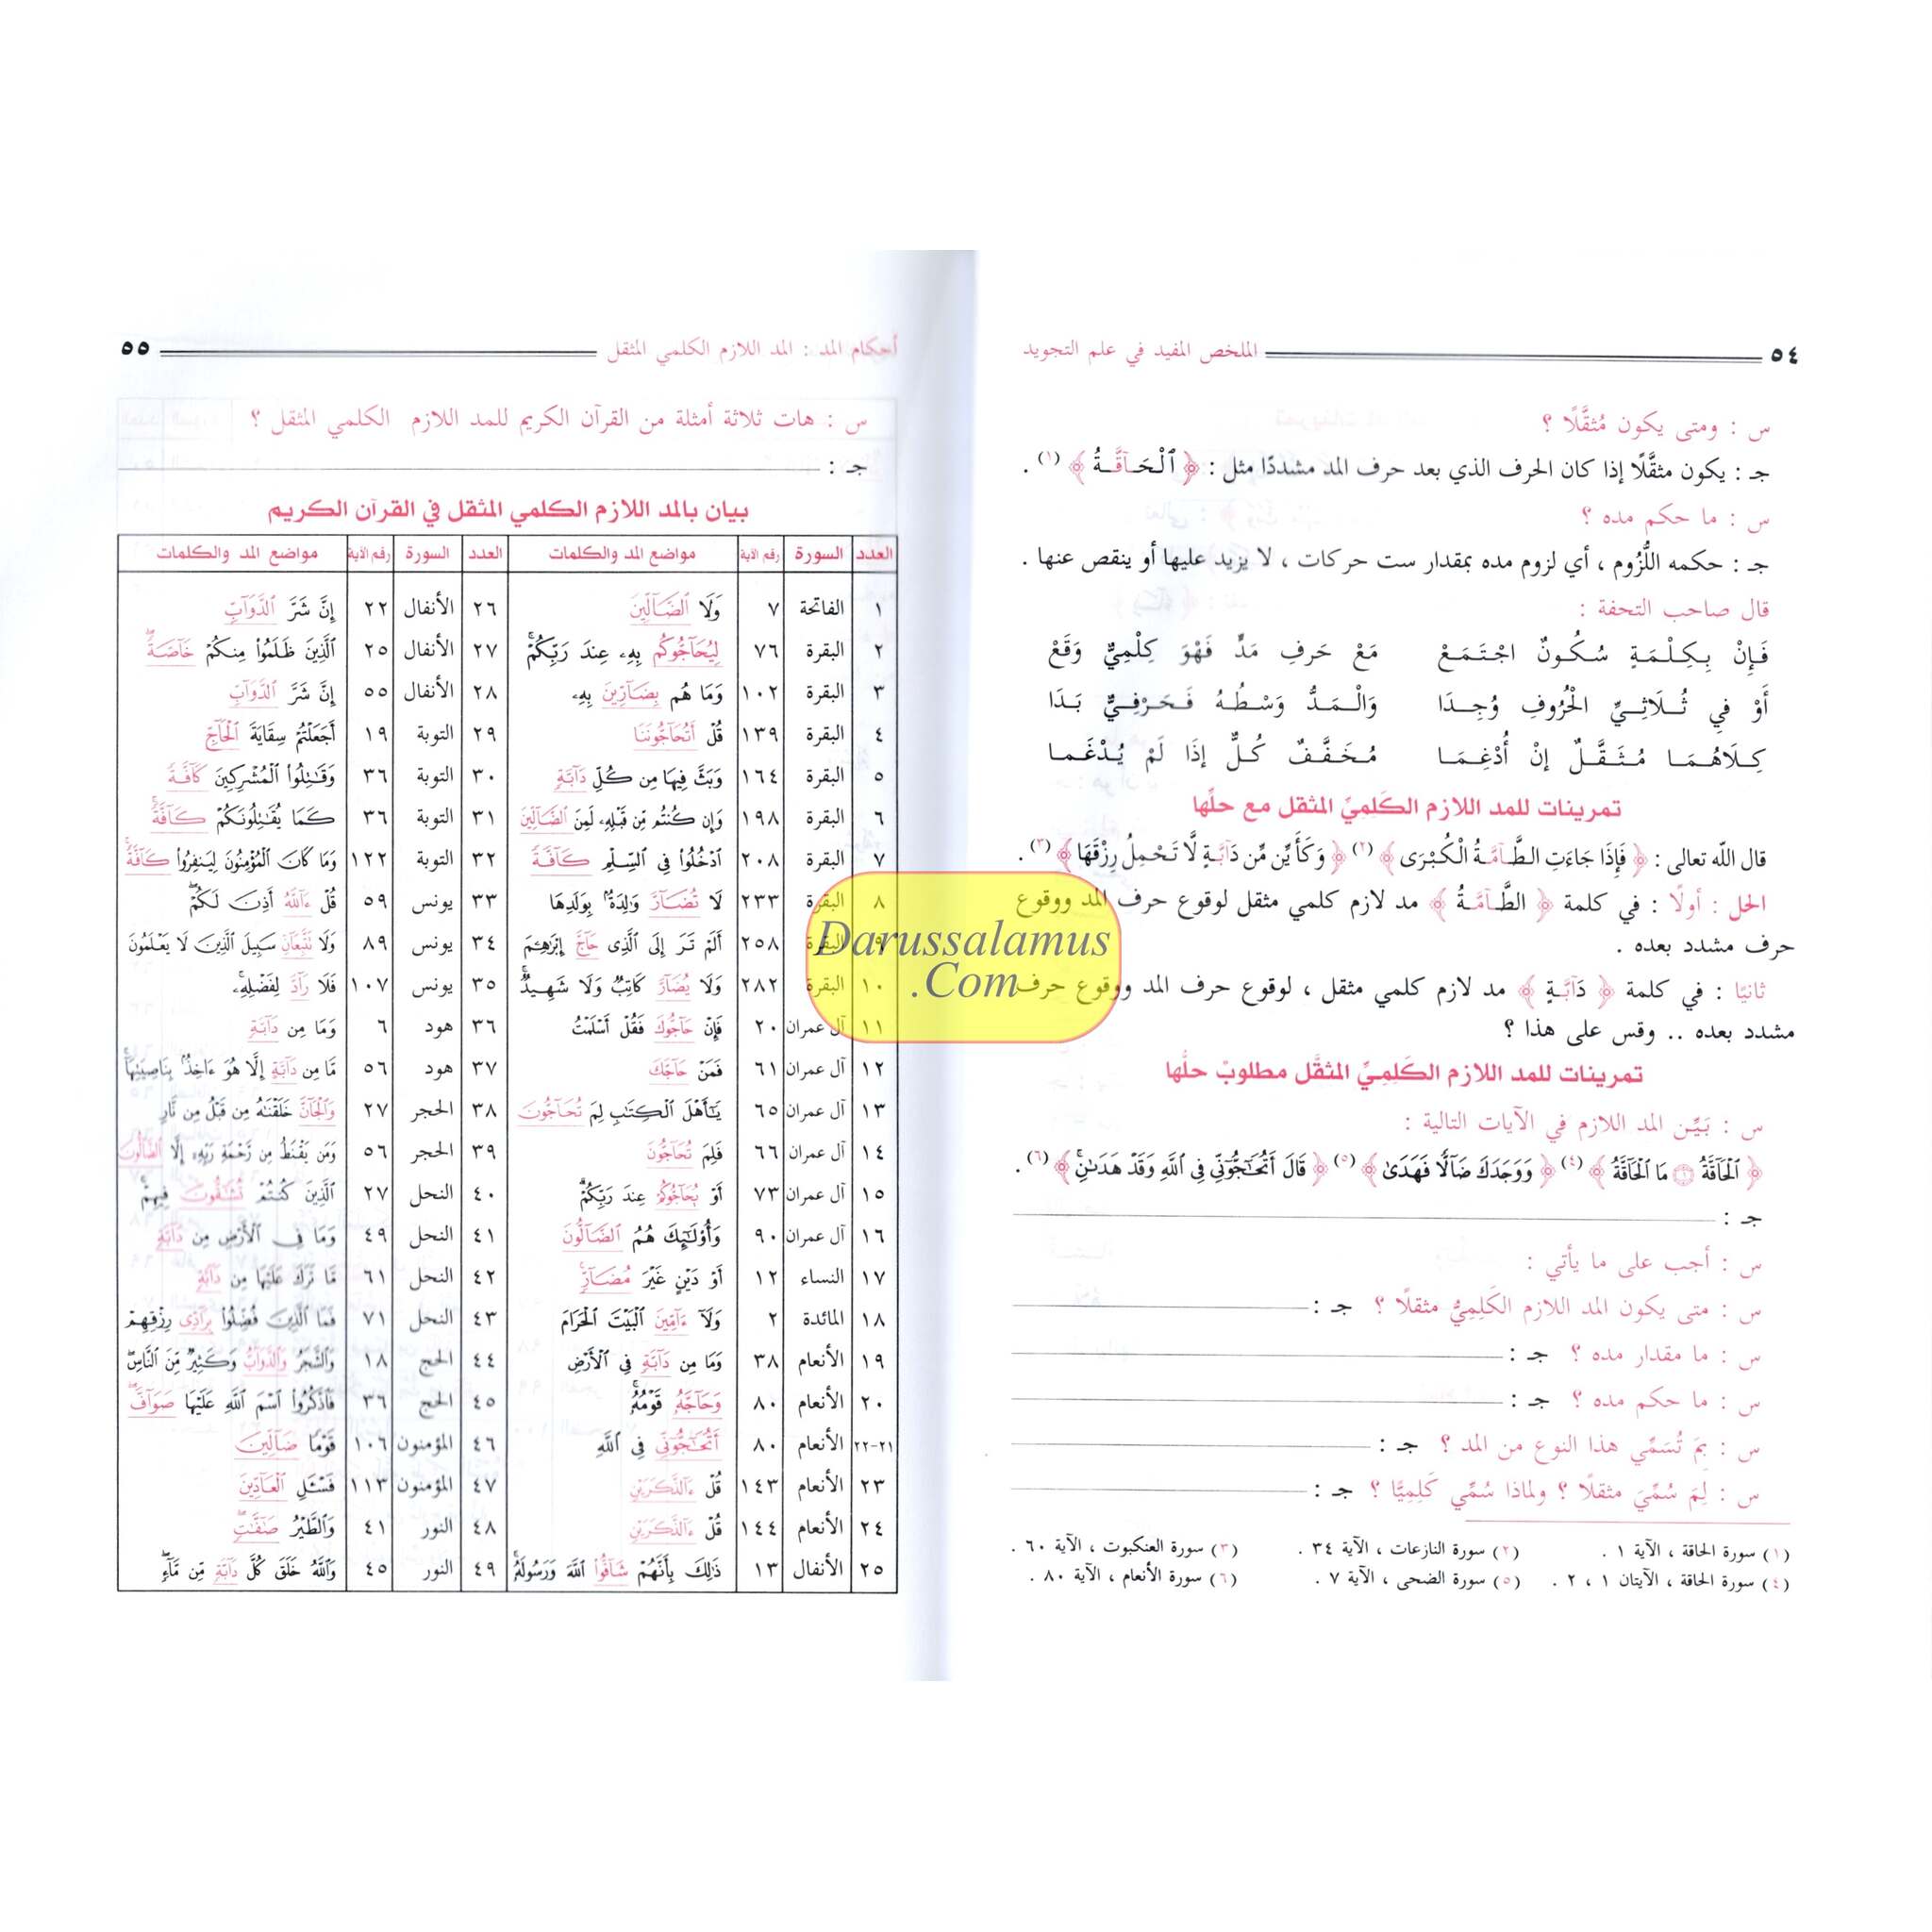 ٥٤ الملخص المفيد في علم التجويد
س : ومتى يكون مُثقَّلًا ؟
جـ : يكون مثقَّلًا إذا كان الحرف الذي بعد حرف المد مشددًا مثل : ﴿ ٱلْحَآقَّةُ ﴾ (١) .
س : ما حكم مده ؟
جـ : حكمه اللُّزُوم ، أي لزوم مده بمقدار ست حركات ، لا يزيد عليها أو ينقص عنها .
قال صاحب التحفة :
فَإِنْ بِكِلْمَةٍ سُكُونٌ اجْتَمَعْ مَعْ حَرفِ مَدٍّ فَهْوَ كِلْمِيٌّ وَقَعْ
أَوْ فِي ثُلَاثِيِّ الْحُرُوفِ وُجِدَا وَالْمَدُّ وَسْطُهُ فَحَرْفِيٌّ بَدَا
كِلَاهُمَا مُثَقَّلٌ إنْ أُدْغِمَا مُخَفَّفٌ كُلٌّ إذَا لَمْ يُدْغَما
تمرينات للمد اللازم الكَلمِيِّ المثقل مع حلِّها
قال الله تعالى : ﴿ فَإِذَا جَاءَتِ الطَّآمَّةُ الْكُبْرَى ﴾ (٢) ﴿ وَكَأَيِّن مِّن دَآبَّةٍ لَّا تَحْمِلُ رِزْقَهَا ﴾ (٣) .
الحل : أولًا : في كلمة ﴿ الطَّآمَّةُ ﴾ مد لازم كلمي مثقل لوقوع حرف المد ووقوع
حرف مشدد بعده .
ثانيًا : في كلمة ﴿ دَآبَّةٍ ﴾ مد لازم كلمي مثقل ، لوقوع حرف المد ووقوع حرف
مشدد بعده .. وقس على هذا ؟
تمرينات للمد اللازم الكَلِمِيِّ المثقَّل مطلوبٌ حلُّها
س : بَيِّن المد اللازم في الآيات التالية :
﴿ ٱلْحَآقَّةُ ١ مَا ٱلْحَآقَّةُ ﴾ (٤) ﴿ وَوَجَدَكَ ضَآلًّا فَهَدَىٰ ﴾ (٥) ﴿ قَالَ أَتُحَٰٓجُّوٓنِّى فِى ٱللَّهِ وَقَدْ هَدَىٰنِ ﴾ (٦) .
جـ :
س : أجب على ما يأتي :
س : متى يكون المد اللازم الكَلِمِيُّ مثقلًا ؟ جـ :
س : ما مقدار مده ؟ جـ :
س : ما حكم مده ؟ جـ :
س : بمَ تُسَمِّي هذا النوع من المد ؟ جـ :
س : لِمَ سُمِّيَ مثقلًا ؟ ولماذا سُمِّي كَلِمِيًّا ؟ جـ :
(١) سورة الحاقة ، الآية ١ . (٢) سورة النازعات ، الآية ٣٤ . (٣) سورة العنكبوت ، الآية ٦٠ .
(٤) سورة الحاقة ، الآيتان ١ ، ٢ . (٥) سورة الضحى ، الآية ٧ . (٦) سورة الأنعام ، الآية ٨٠ .
أحكام المد : المد اللازم الكلمي المثقل ٥٥
س : هات ثلاثة أمثلة من القرآن الكريم للمد اللازم الكلمي المثقل ؟
جـ :
بيان بالمد اللازم الكلمي المثقل في القرآن الكريم
العدد السورة رقم الآية مواضع المد والكلمات العدد السورة رقم الآية مواضع المد والكلمات
١ الفاتحة ٧ وَلَا ٱلضَّآلِّينَ ٢٦ الأنفال ٢٢ إِنَّ شَرَّ ٱلدَّوَآبِّ
٢ البقرة ٧٦ لِيُحَآجُّوكُم بِهِۦ عِندَ رَبِّكُمْ ٢٧ الأنفال ٢٥ ٱلَّذِينَ ظَلَمُوا۟ مِنكُمْ خَآصَّةً
٣ البقرة ١٠٢ وَمَا هُم بِضَآرِّينَ بِهِۦ ٢٨ الأنفال ٥٥ إِنَّ شَرَّ ٱلدَّوَآبِّ
٤ البقرة ١٣٩ قُلْ أَتُحَآجُّونَنَا ٢٩ التوبة ١٩ أَجَعَلْتُمْ سِقَايَةَ ٱلْحَآجِّ
٥ البقرة ١٦٤ وَبَثَّ فِيهَا مِن كُلِّ دَآبَّةٍ ٣٠ التوبة ٣٦ وَقَٰتِلُوا۟ ٱلْمُشْرِكِينَ كَآفَّةً
٦ البقرة ١٩٨ وَإِن كُنتُم مِّن قَبْلِهِۦ لَمِنَ ٱلضَّآلِّينَ ٣١ التوبة ٣٦ كَمَا يُقَٰتِلُونَكُمْ كَآفَّةً
٧ البقرة ٢٠٨ ٱدْخُلُوا۟ فِى ٱلسِّلْمِ كَآفَّةً ٣٢ التوبة ١٢٢ وَمَا كَانَ ٱلْمُؤْمِنُونَ لِيَنفِرُوا۟ كَآفَّةً
٨ البقرة ٢٣٣ لَا تُضَآرَّ وَٰلِدَةٌۢ بِوَلَدِهَا ٣٣ يونس ٥٩ قُلْ ءَآللَّهُ أَذِنَ لَكُمْ
٩ البقرة ٢٥٨ أَلَمْ تَرَ إِلَى ٱلَّذِى حَآجَّ إِبْرَٰهِـۧمَ ٣٤ يونس ٨٩ وَلَا تَتَّبِعَآنِّ سَبِيلَ ٱلَّذِينَ لَا يَعْلَمُونَ
١٠ البقرة ٢٨٢ وَلَا يُضَآرَّ كَاتِبٌ وَلَا شَهِيدٌ ٣٥ يونس ١٠٧ فَلَا رَآدَّ لِفَضْلِهِۦ
١١ آل عمران ٢٠ فَإِنْ حَآجُّوكَ فَقُلْ أَسْلَمْتُ ٣٦ هود ٦ وَمَا مِن دَآبَّةٍ
١٢ آل عمران ٦١ فَمَنْ حَآجَّكَ ٣٧ هود ٥٦ مَّا مِن دَآبَّةٍ إِلَّا هُوَ ءَاخِذٌۢ بِنَاصِيَتِهَآ
١٣ آل عمران ٦٥ يَٰٓأَهْلَ ٱلْكِتَٰبِ لِمَ تُحَآجُّونَ ٣٨ الحجر ٢٧ وَٱلْجَآنَّ خَلَقْنَٰهُ مِن قَبْلُ مِن نَّارِ
١٤ آل عمران ٦٦ فَلِمَ تُحَآجُّونَ ٣٩ الحجر ٥٦ وَمَن يَقْنَطُ مِن رَّحْمَةِ رَبِّهِۦٓ إِلَّا ٱلضَّآلُّونَ
١٥ آل عمران ٧٣ أَوْ يُحَآجُّوكُمْ عِندَ رَبِّكُمْ ٤٠ النحل ٢٧ ٱلَّذِينَ كُنتُمْ تُشَٰٓقُّونَ فِيهِمْ
١٦ آل عمران ٩٠ وَأُو۟لَٰٓئِكَ هُمُ ٱلضَّآلُّونَ ٤١ النحل ٤٩ وَمَا فِى ٱلْأَرْضِ مِن دَآبَّةٍ
١٧ النساء ١٢ أَوْ دَيْنٍ غَيْرَ مُضَآرٍّ ٤٢ النحل ٦١ مَّا تَرَكَ عَلَيْهَا مِن دَآبَّةٍ
١٨ المائدة ٢ وَلَآ ءَآمِّينَ ٱلْبَيْتَ ٱلْحَرَامَ ٤٣ النحل ٧١ فَمَا ٱلَّذِينَ فُضِّلُوا۟ بِرَآدِّى رِزْقِهِمْ
١٩ الأنعام ٣٨ وَمَا مِن دَآبَّةٍ فِى ٱلْأَرْضِ ٤٤ الحج ١٨ وَٱلشَّجَرُ وَٱلدَّوَآبُّ وَكَثِيرٌ مِّنَ ٱلنَّاسِ
٢٠ الأنعام ٨٠ وَحَآجَّهُۥ قَوْمُهُۥ ٤٥ الحج ٣٦ فَٱذْكُرُوا۟ ٱسْمَ ٱللَّهِ عَلَيْهَا صَوَآفَّ
٢١-٢٢ الأنعام ٨٠ أَتُحَٰٓجُّوٓنِّى فِى ٱللَّهِ ٤٦ المؤمنون ١٠٦ قَوْمًا ضَآلِّينَ
٢٣ الأنعام ١٤٣ قُلْ ءَآلذَّكَرَيْنِ ٤٧ المؤمنون ١١٣ فَسْـَٔلِ ٱلْعَآدِّينَ
٢٤ الأنعام ١٤٤ قُلْ ءَآلذَّكَرَيْنِ ٤٨ النور ٤١ وَٱلطَّيْرُ صَٰٓفَّٰتٍ
٢٥ الأنفال ١٣ ذَٰلِكَ بِأَنَّهُمْ شَآقُّوا۟ ٱللَّهَ وَرَسُولَهُۥ ٤٩ النور ٤٥ وَٱللَّهُ خَلَقَ كُلَّ دَآبَّةٍ مِّن مَّآءٍ
Darussalamus
.Com